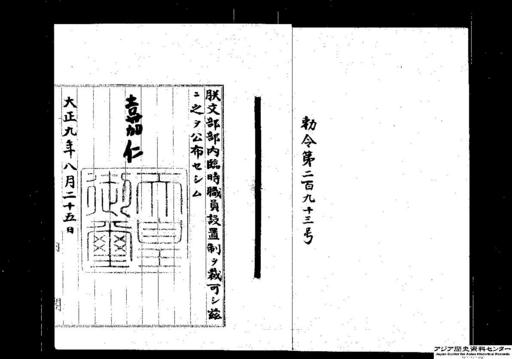 勅令第二百九十三号
朕文部部内臨時職員設置制ヲ裁可シ茲
ニ之ヲ公布セシム
嘉仁
天皇御璽
大正九年八月二十五日
アジア歴史資料センター
Japan Center for Asian Historical Records